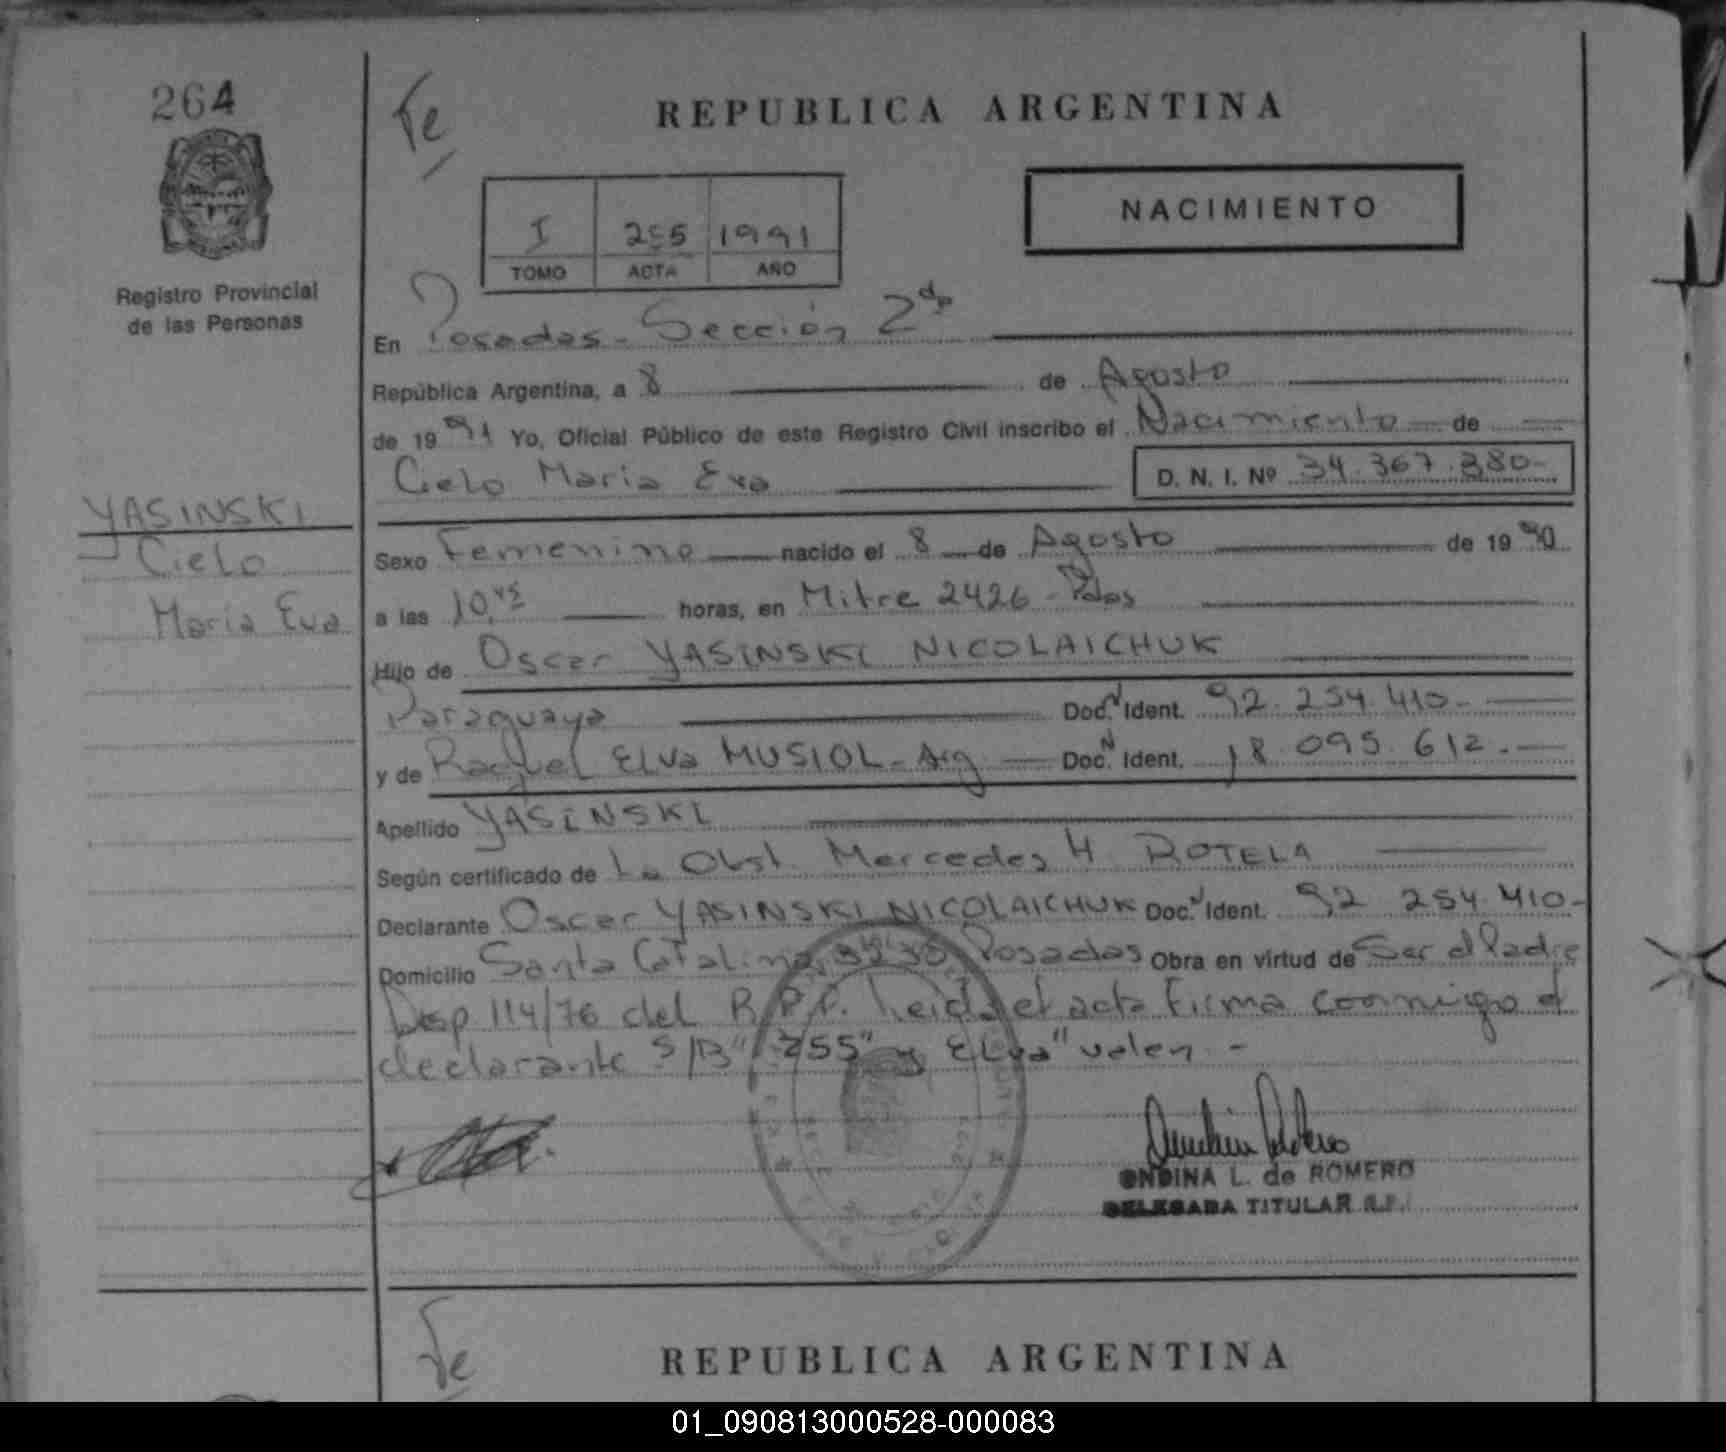 264
Registro Provincial
de las Personas
YASINSKI
Cielo
María Eva
Fe
REPUBLICA ARGENTINA
I 255 1991
TOMO ACTA AÑO
NACIMIENTO
En Posadas - Sección 2da
República Argentina, a 8 de Agosto
de 1991 Yo, Oficial Público de este Registro Civil inscribo el Nacimiento de
Cielo María Eva D. N. I. Nº 34.367.380-
Sexo Femenino nacido el 8 de Agosto de 1990
a las 10,45 horas, en Mitre 2426 - Pdas
Hijo de Oscar YASINSKI NICOLAICHUK
Paraguaya Doc. N Ident. 92.254.410-
y de Raquel Elva MUSIOL - Arg Doc. N Ident. 18.095.612.-
Apellido YASINSKI
Según certificado de La Obst. Mercedes H. ROTELA
Declarante Oscar YASINSKI NICOLAICHUK Doc. N Ident. 92 254.410-
Domicilio Santa Catalina Posadas Obra en virtud de Ser el Padre
Disp 114/76 del R.P.P. Leida el acta firma conmigo el
declarante S/B "255" y "Elva" valen -
ONDINA L. de ROMERO
DELEGADA TITULAR R.P.
Fe
REPUBLICA ARGENTINA
01_090813000528-000083